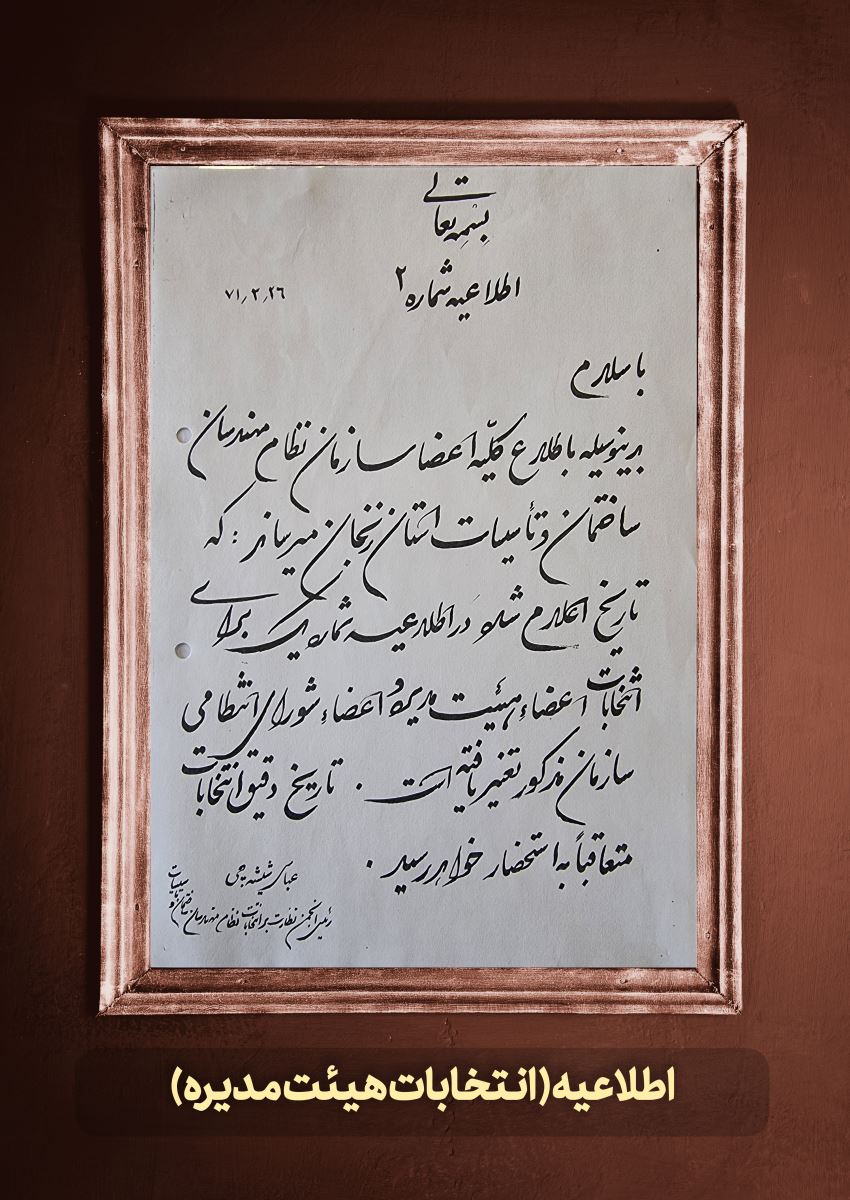 بسمه تعالی
اطلاعیه شماره ۲
۷۱٫۲٫۲۶
با سلام
بدینوسیله باطلاع کلیّه اعضا سازمان نظام مهندسان
ساختمان و تأسیسات استان زنجان میرساند : که
تاریخ اعلام شده در اطلاعیه شماره یک برای
انتخابات اعضاء هیئت مدیره و اعضاء شورای انتظامی
سازمان مذکور تغییر یافته است . تاریخ دقیق انتخابات
متعاقباً به استحضار خواهد رسید .
عباس
رئیس انجمن نظارت بر انتخابات نظام مهندسان ساختمان و تاسیسات
اطلاعیه(انتخابات هیئت مدیره)